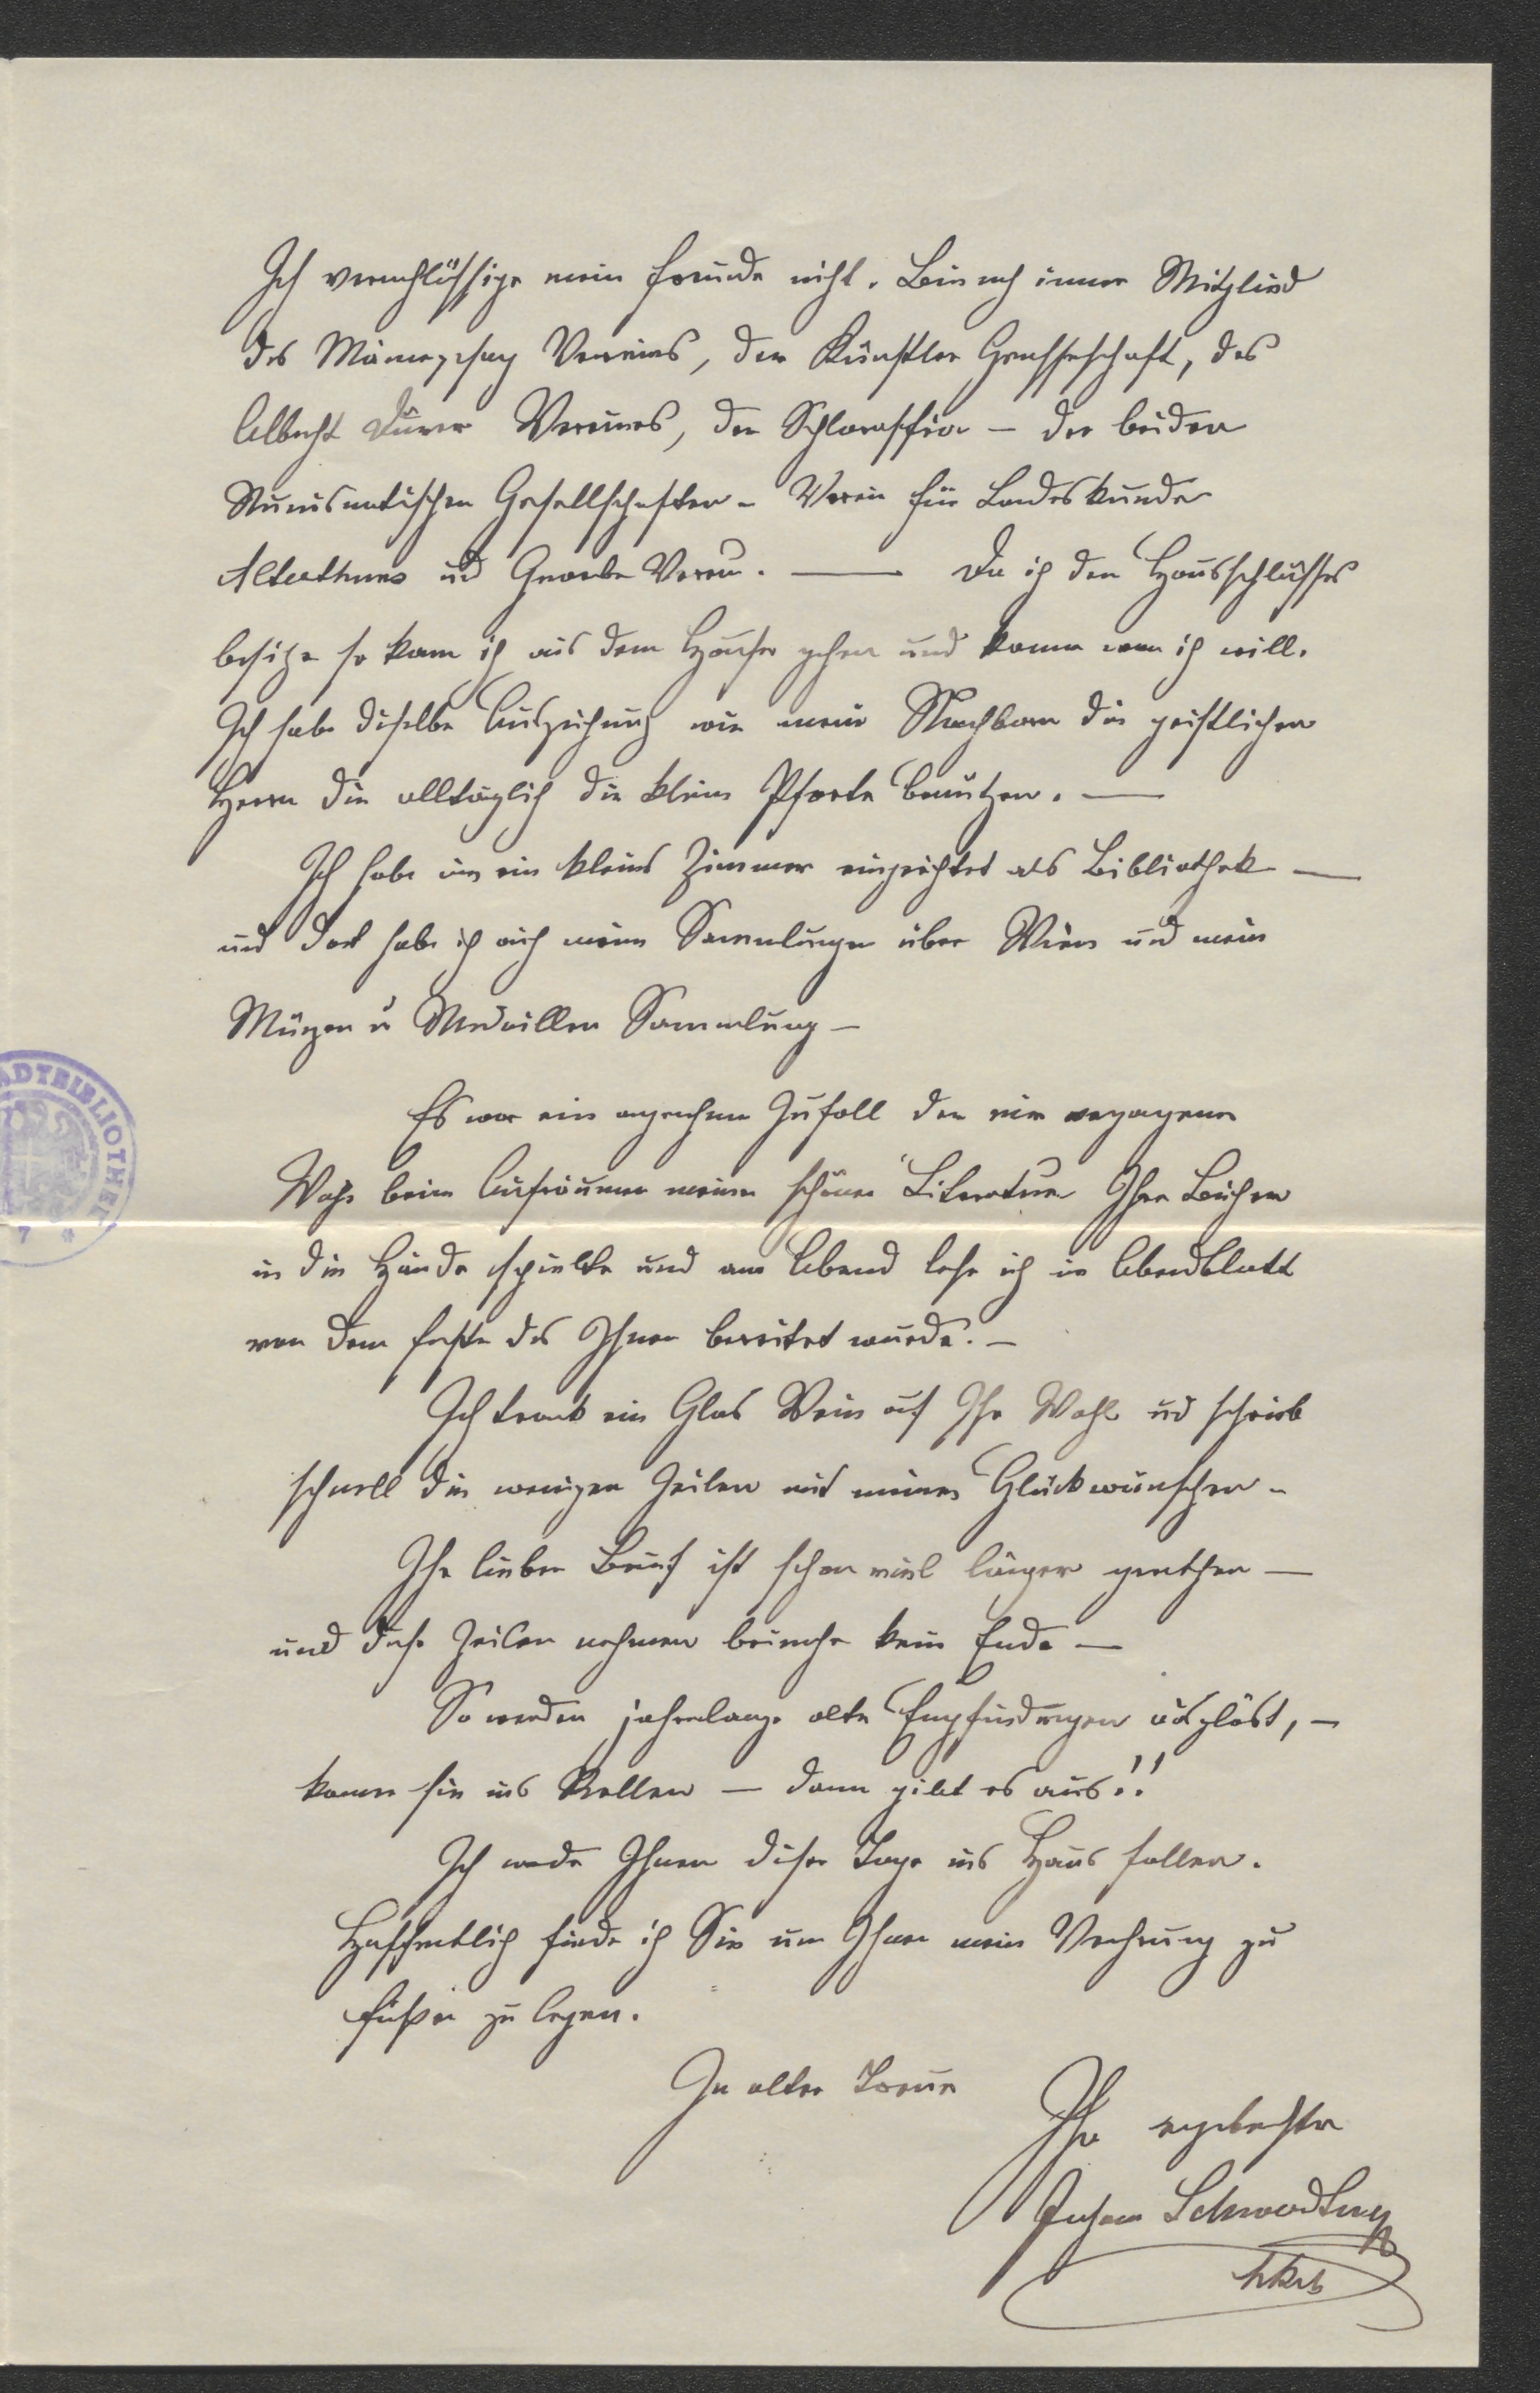 Ich vernachlässige meine Freunde nicht. Bin noch immer Mitglied
des Männergesang Vereines, der Künstler Genossenschaft, des
Albrecht Dürer Vereines, der Schlaraffia – der beiden
Numismatischen Gesellschaften – Verein für Landeskunde
Alterthums und Gewerbe Verein. — Da ich den Hausschlüssel
besitze so kann ich aus dem Hause gehen und komme wann ich will.
Ich habe dieselbe Auszeichnung wie meine Nachbarn die geistlichen
Herrn die alltäglich die kleine Pforte benützen. —
Ich habe ein kleines Zimmer eingerichtet als Bibliothek —
und dort habe ich auch meine Sammlungen über Wien und meine
Münzen u Medaillen Sammlung –
Es war ein angenehmer Zufall der mir vergangene
Woche beim Aufräumen meiner schönen Literatur Ihre Bücher
in die Hände spielte und am Abend lese ich im Abendblatt
von dem Feste das Ihnen bereitet wurde. –
Ich trank ein Glas Wein auf Ihr Wohl und schrieb
schnell die wenigen Zeilen mit meinen Glückwünschen –
Ihr lieber Brief ist schon viel länger gerathen —
und diese Zeilen nehmen beinahe kein Ende —
So werden jahrelange alte Empfindungen ausgelöst, –
kommen sie ins Rollen — dann gibt es aus!!
Ich werde Ihnen dieser Tage ins Haus fallen.
Hoffentlich finde ich Sie um Ihnen meine Verehrung zu
Füßen zu legen.
In alter Treue
Ihr ergebenster
STADTBIBLIOTHEK